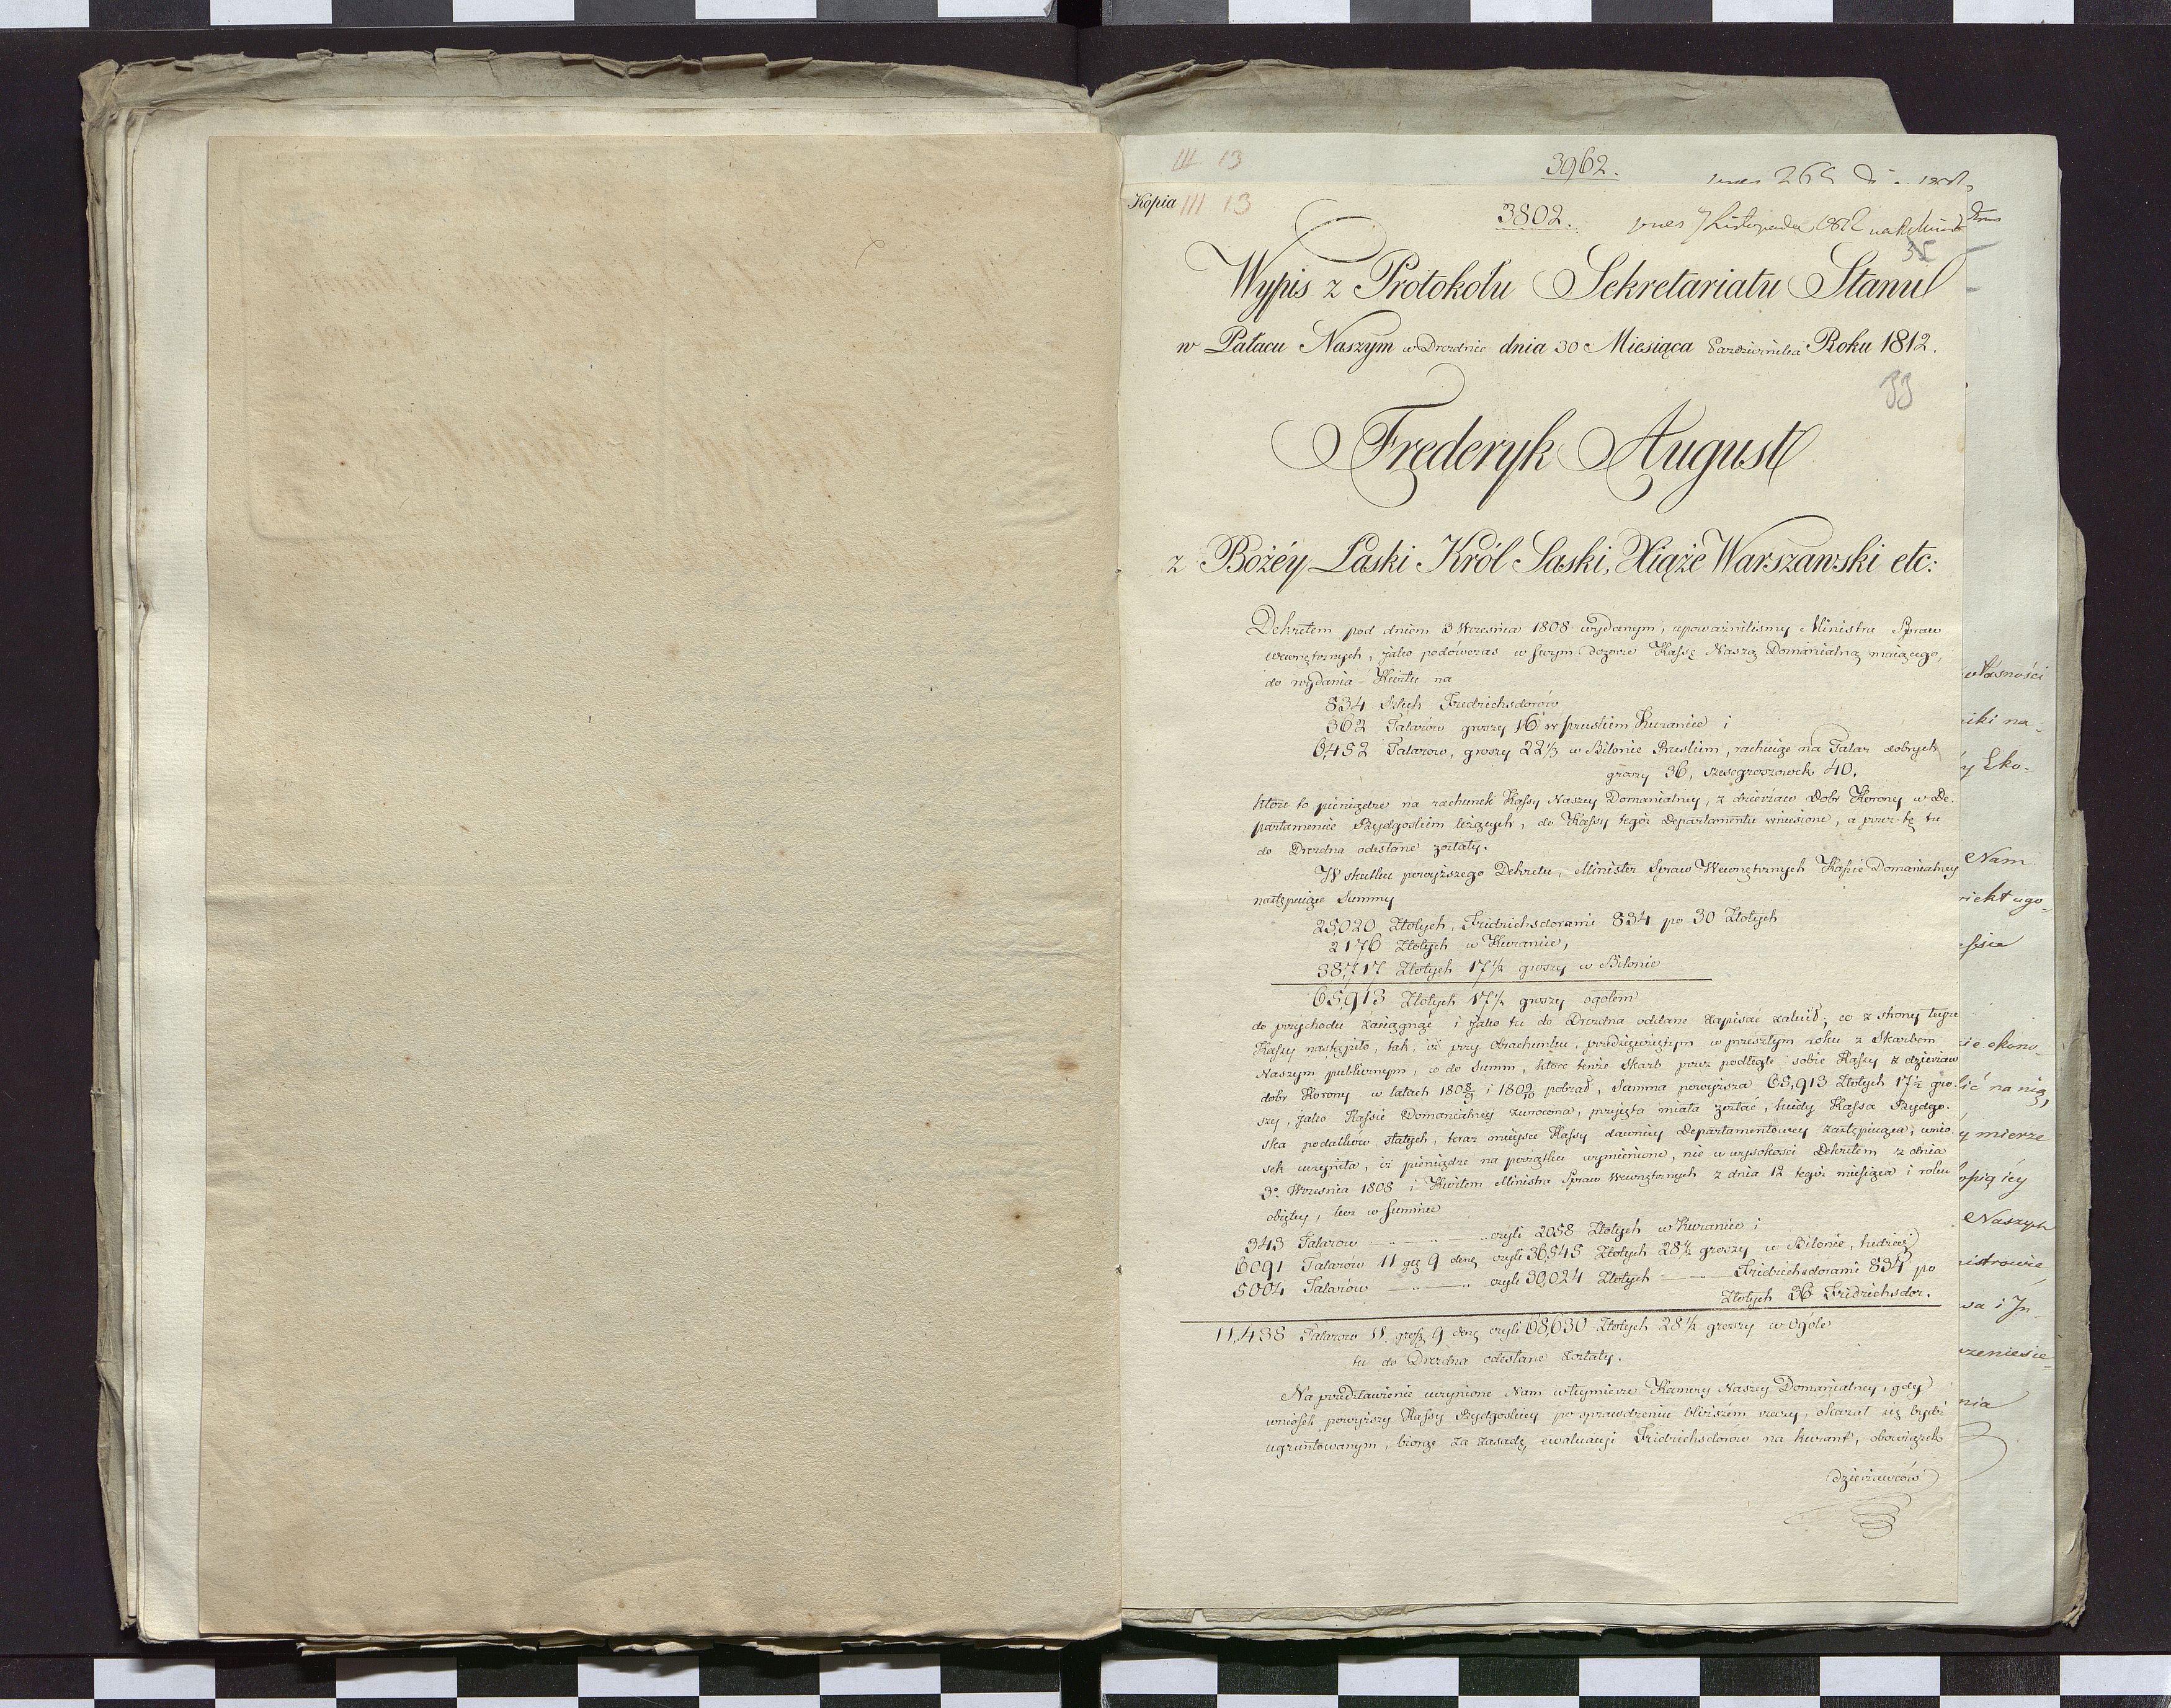 III 13
3962.
Kopia III 13
3802.
pnes 7 Listopada 1812
35
Wypis z Protokołu Sekretariatu Stanu
w Pałacu Naszym w Dreznie dnia 30 Miesiąca Pazdziernika Roku 1812.
33
Frederyk August
z Bożéy Łaski Król Saski, Xiąże Warszawski etc:
Dekretem pod dniem 3 Wrzesnia 1808 wydanym, upoważnilismy Ministra Spraw
wewnętrznych, jako podówczas w swym dozorze Kassę Naszą Domanialną maiącego,
do wydania Kwitu na
834 Sztuk Fredrichsdorów
362 Talarów groszy 16 w pruskim Kurancie i
6,452 Talarow, groszy 22½ w Bilonie Pruskim, rachuiąc na Talar dobrych
groszy 36, szescgroszowek 40.
które to pieniądze na rachunek Kassy Naszey Domanialney, z dzierżaw Dobr Korony w De-
partamencie Bydgoskim leżących, do Kassy tegoż Departamentu wniesione, a przez tę tu
do Drezdna odesłane zostały.
W skutku powyższego Dekretu, Minister Spraw Wewnętrznych Kassie Domanialney
następuiące Summy
25,020 Złotych, Fridrichsdorami 834 po 30 Złotych
2176 Złotych w Kurancie,
38,717 Złotych 17½ groszy w Bilonie
65,913 Złotych 17½ groszy ogołem
do przychodu zaciągnąć i jako tu do Drezdna oddane zapisać zalecił; co z strony teyże
Kassy nastąpiło, tak, iż przy Obrachunku, przedsięwziętym w przeszłym roku z Skarbem
Naszym publicznym, co do Summ, które tenże Skarb przez podległe sobie Kassy z dzierżaw
dobr Korony w latach 1808/9 i 1809/10 pobrał, Summa powyższa 65,913 Złotych 17½ gro-
szy, jako Kassie Domanialney zwrocona, przyięta miała zostać, kiedy Kassa Bydgo-
ska podatków stałych, teraz mieysce Kassy dawniey Departamentowey zastępuiąca, wnio-
sek uczyniła, iż pieniądze na początku wymienione, nie w wysokości Dekretem z dnia
3o Wrzesnia 1808 i Kwitem Ministra Spraw Wewnętrznych z dnia 12 tegoż miesiąca i roku
obiętey, lecz w summie
343 Talarow czyli 2058 Złotych w Kurancie i
6091 Talarów 11 gg 9 deng czyli 36,545 Złotych 28½ groszy w Bilonie, tudzież
5004 Talarów czyli 30,024 Złotych Fridrichsdorami 834 po
Złotych 36 Fridrichsdor.
11,438 Talarow 11 grosz 9 deng czyli 68,630 Złotych 28½ groszy w Ogóle
tu do Drezdna odesłane zostały.
Na przedstawienie uczynione Nam w teymierze Kamery Naszey Domanialney, gdy
wniosek powyższy Kassy Bydgoskiey po sprawdzeniu bliższém rzeczy, okazał się bydź
ugruntowanym, biorąc za zasadę ewaluacyi Fridrichsdorów na kurant, obowiązek
dzierżawców
własności
iki na-
y Eko-
Nam
ekono-
ić na nią,
y mierze
opią iéy
Naszych
nistrowie
wa i In
rzeniesie-
nia